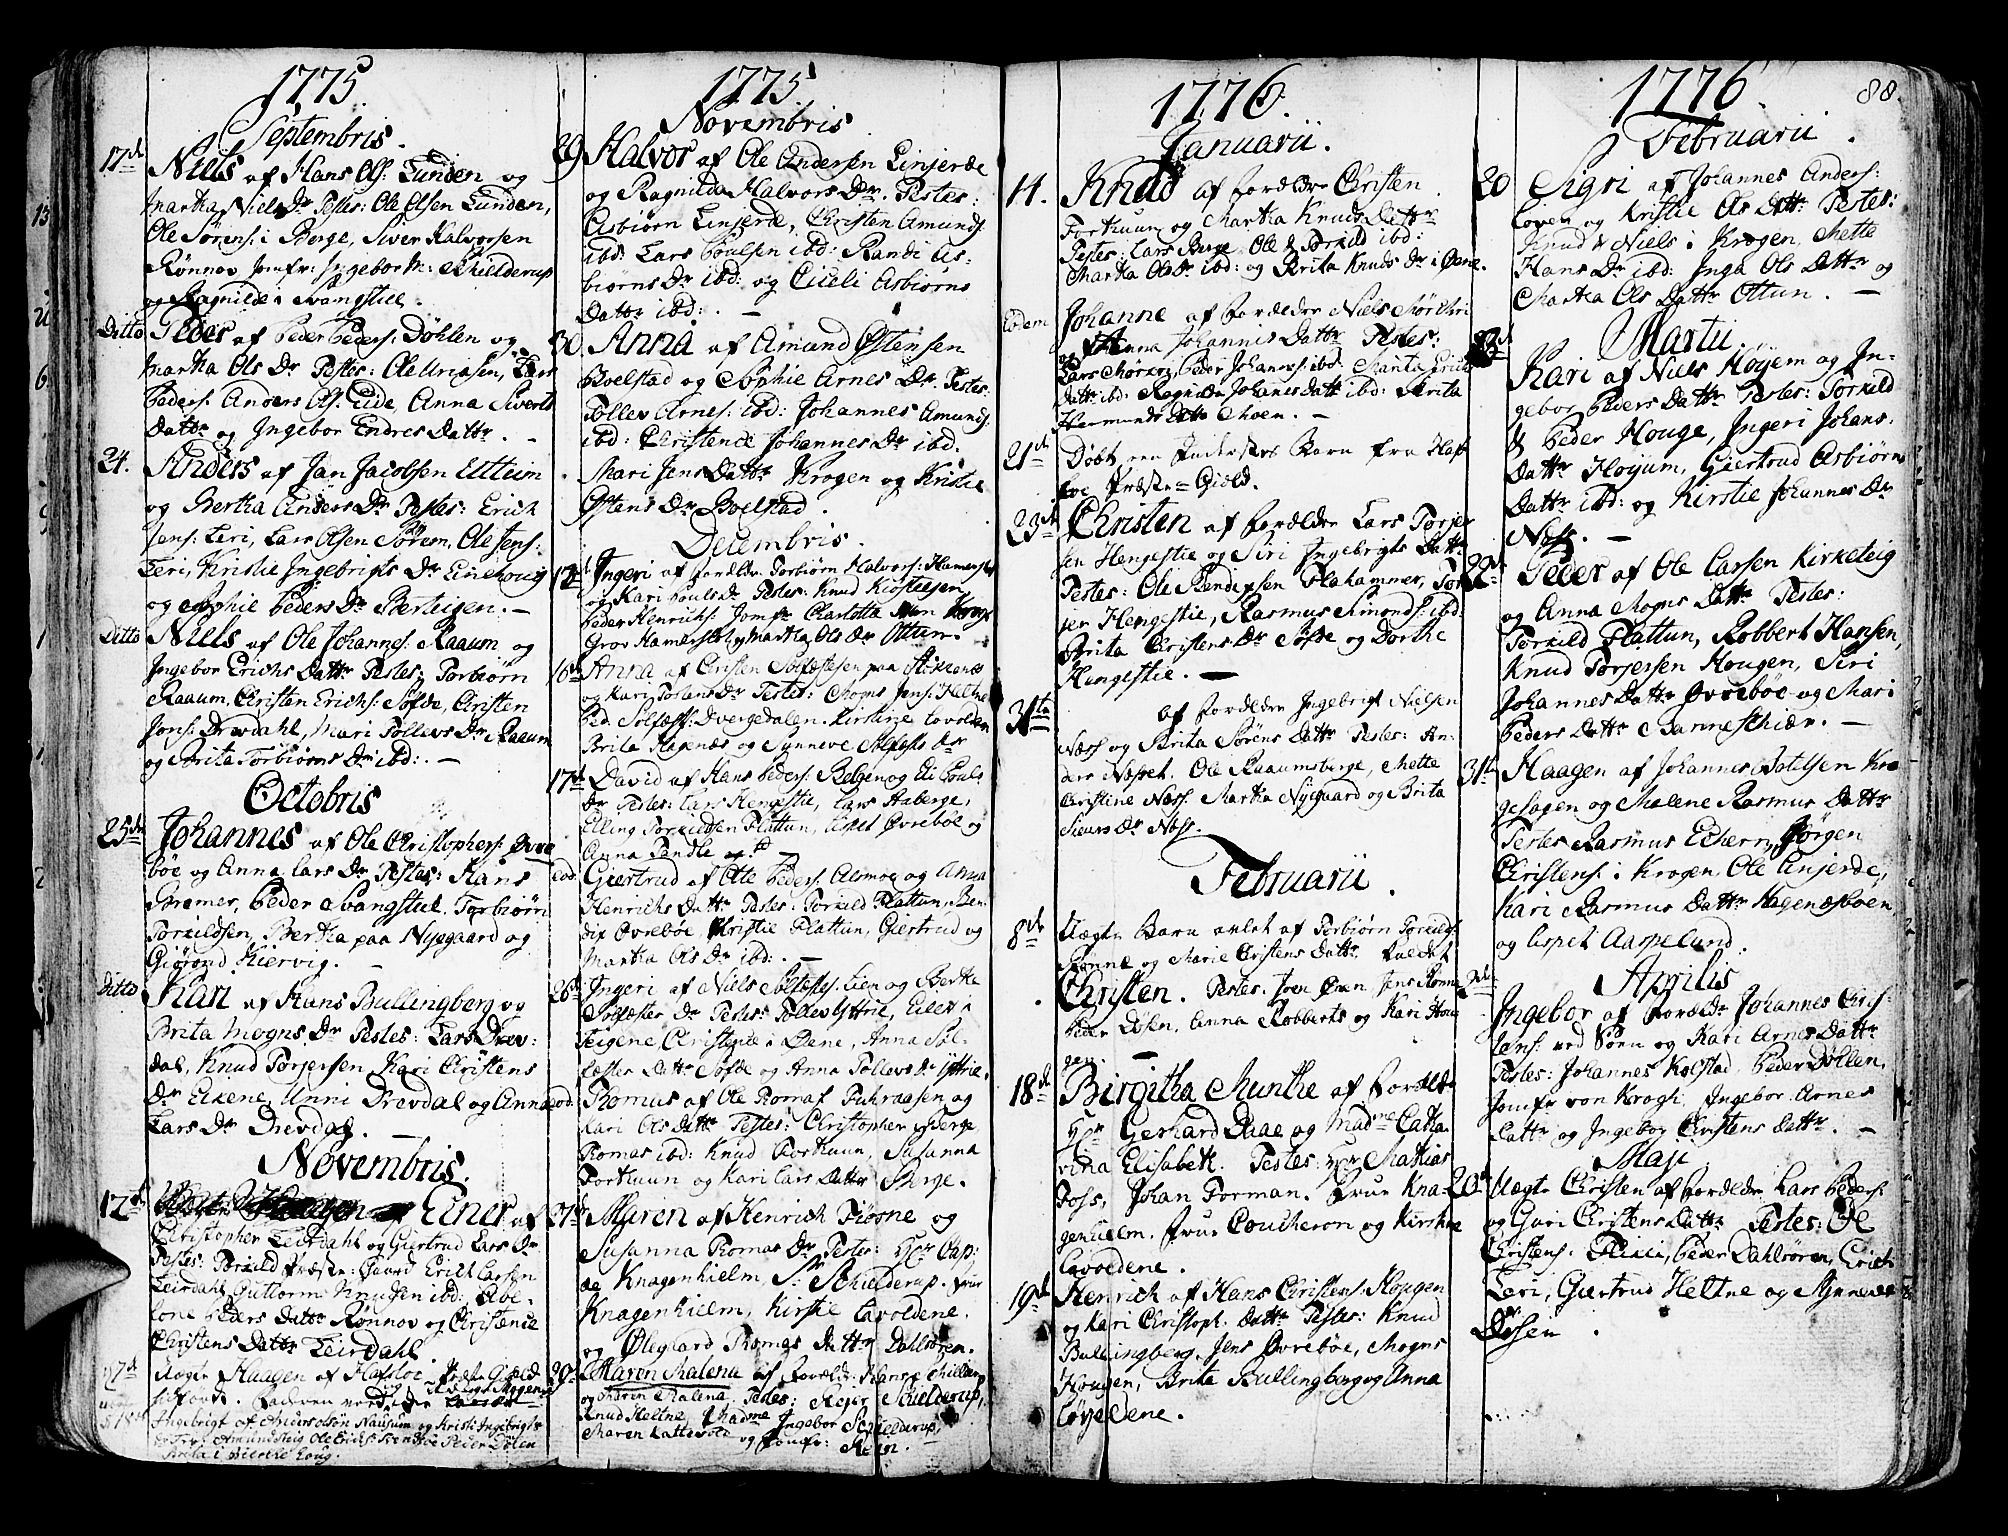 1775
Septembris.
17de Niels af Hans Ols: Lunden og
Martha Niels Dr Testes: Ole Olsen Lunden,
Ole Sørens: i Berge, Siver Halvorsen
Rønnov Jomfr: Ingebor M: Schielderup
og Ragnilde i Svangstuel.
Ditto Peder af Peder Peders: Døhlen og
Martha Ols Dr Testes: Ole Uriasen, Lars
Peders: Anders Ols: Eide, Anna Siverts
Dattr og Ingebor Endres Dattr.
24. Anders af Jan Jacobsen Eltteim
og Bertha Anders Dr Testes: Erich
Jens: Leri, Lars Olsen Sørem, Ole Jens:
Leri, Kristie Ingebrigts Dr Linehoug
og Sophie Peders Dr Berteigen.
Ditto Niels af Ole Johannes: Raaum og
Ingebor Erichs Dattr Testes Torbiørn
Raaum, Christen Erichs: Sofde, Christen
Jons: Drevdahl, Mari Tollevs Dr Raaum
og Brita Torbiørns Dr ibd:.
Octobris
25de Johannes af Ole Christophers: Øvre
bøe og Anna Lars Dr Testes: Hans
Bremer, Peder Svangstuel. Torbiørn
Torkildsen, Bertha paa Nyegaard og
Giørond Kiervig.
Ditto Kari af Hans Bullingberg og
Brita Mogns Dr Testes: Lars Drev:
dal, Knud Torjersen Kari Christens
Dr Eikene, Unni Drevdal og Anna
Lars Dr Drevdal.
Novembris.
12te Einer af
Christopher Leirdahl og Giertrud Lars Dr
Testes: Torkild Præste: Gaard Erich Larsen
Leirdahl Guttorm Knudsen ibd: Abe-
lone Peders Dattr Rønnov og Christence
Christens Dattr Leirdahl.
Uægte Haagen af Hafsloe Præste Gield
Ingebrigt af Anders Olsen Nausum og Kristi Ingebrigts
1775.
Novembris
29 Halvor af Ole Andersen Linjerde
og Ragnilda Halvors Dr. Testes:
Asbiørn Linjerde, Christen Amunds:
ibd: Lars Poulsen ibd: Randi As-
biørns Dr ibd: og Ciceli Asbiørns
Dattr ibd:.
30 Anna af Amund Østensen
Boelstad og Sophie Arnes Dr. Testes:
Tollev Arnes: ibd: Johannes Amunds:
ibd: Christence Johannes Dr ibd.
Mari Jens Dattr Krogen og Kristie
Østens Dr Boelstad.
Decembris.
12te Ingeri af Forældre Torbiørn Halvors: Hamersbø
og Kari Pouls Dr Testes: Knud Kiostelsen
Peder Henrichs: Jomfr Charlotte
Grov Hamersbø, Martha Ols Dr Ottun.
16de Anna af Christen Solfæstesen paa
og Kari Torstens Dr Testes: Mogns Jens: Heltne
Ped. Solfæst: Dvergedalen. Kirstine Lavolden
Brita Hagenæs og Synneve Solfæsts Dr
17de David af Hans Peders: Bolgen og Eli Pouls
Dr Testes: Lars Hengestie, Lars Haberge,
Elling Torkildsen Flattun, Lispet Øvrebøe og
Anna
eod: Giertrud af Ole Peders: Alsmoe og Anna
Henrichs Dattr Testes. Torkild Flattun. Ben
dix Øvrebøe Christie Flattun, Giertrud og
Martha Ols Dr ibd:.
26de Ingeri af Niels Solfæsts: Lien og Bertha
Solfæster Dr Testes: Tollev Yttrie, Eiler i
Teigene, Christence i Øene, Anna Sol-
fæster Dattr Sofde og Anna Tollevs Dr Yttrie.
eod: Thomas af Ole Thomas: Fuhraasen og
Kari Ols Dattr Testes: Christopher Berge
Thomas ibd: Knud Forthuun, Susanna
Forthuun og Kari Lars Datter Berge.
27de Maren af Henrich Fiøsne og
Susanna Thomas Dr Testes: Hr Cap:
de Knagenhielm, Sr Schielderup. Frur
Knagenhielm, Kirstie Lavoldene.
og Ølegaard Thomas Dattr Dahlsøren.
29de Maren Malena af Forældr: Hans Schielderup
og Maren Malena, Testes: Rejer Schielderup,
Knud Heltne, Madme Ingebor Schielderup,
Maren
og Jomfr: Rein.
1776.
Januarii.
14. Knud af Forældre Christen
Forthuun og Martha Knuds Dattr
Testes: Lars Berge Ole & Torkild ibd:
Martha Ols Dr ibd: og Brita Knuds Dr i Øene.
Eodem Johanne af Forældre Niels Mørchri
og Anna Johannis Dattr Testes:
Lars Mørkri, Peder Johannes: ibd:
Dattr: ibd: Ragnilde Johannes Dattr ibd: Brita
Harmunds Dattr Moen.
21de Døbt een Barn fra Hafs
loe Præste Gield.
23de Christen af Forældre Lars Torjer
sen Hengestie og Siri Ingebrigts Dattr
Testes: Ole Bendixsen Flahammer, Tor
jer Hengestie, Rasmus Simonds: ibd:
Brita Christens Dr Sofde og Dorthe
Hengestie.
31te af Forældre Ingebrigt Nielsen
Næss og Brita Sørens Dattr Testes: An-
ders Næsset. Ole Raaumsberge, Mette
Christine Næss. Martha Nyegaard og Brita
Siurs Dr Næss.
Februarii.
8de Uægte Barn avlet af Torbiørn Torkilds:
Rønne og Marie Christens Dattr kaldet
Christen. Testes. Joen Øren Jens Rønne
Peder Døsen, Anna Robberts og Kari Hou
gen.
18de Birgitha Munthe af Forældr
Hr Gerhard Daae og Madme Catha
rina Elisabeth. Testes: Hr Mathias
Foss, Johan Forman. Frue Kna-
genhielm. Frue Coucheron og Kirstie
Lavoldene.
19de Henrich af Hans Christens: Hougen
og Kari Christoph: Dattr Testes: Knud
Bullingberg. Jens Øvrebøe, Mogns
Hougen, Brita Bullingberg og Anna
Løyedene.
1776.
88.
Februarii.
20 Sigri af Johannes Anders:
Loven og Kristie Ols Dattr Testes:
Knud & Niels i Krogen, Mette
Hans Dr ibd: Inga Ols Dattr og
Martha Ols Dattr Ottun.
Martii.
Kari af Niels Høyem og In-
gebor Peders Dattr Testes: Torkild
& Peder Houge, Ingeri Johans:
Dattr Høyum, Giertrud Asbiørns
Dattr ibd: og Kirstie Johannes Dr
Næss.
22de Peder af Ole Larsen Kirketeig
og Anna Mogns Dattr Testes:
Torkild Flattun, Robbert Hansen,
Knud Torjersen Hougen, Siri
Johannes Dattr Øvrebøe og Mari
Peders Dattr Banneschiær.
31te Haagen af Johannes Botelsen Kro
gehagen og Malene Rasmus Dattr
Testes Rasmus Echerr, Jørgen
Christens: i Krogen, Ole Linjerde,
Kari Rasmus Dattr Hagenæsboen,
og Lispet Aaspelund.
Aprilis
Ingebor af Forældr Johannes Chris-
tens: ved Søen og Kari Arnes Dattr
Testes: Johannes Kolstad, Peder Døllen,
Jomfr von Krogh. Ingebor Arnes
Dattr og Ingebor Christens Dattr.
Maji
20de Uægte Christen af Forældr Lars Peders:
og Guri Christens Dattr Testes: Ole
Christens: Peder Dahlsøren, Erich
Leri, Giertrud Heltne og Synneve
Døsen.